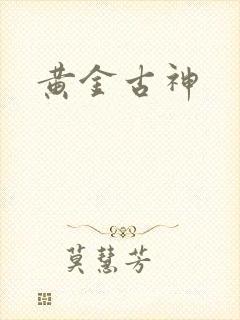 黄金古神
莫慧芳